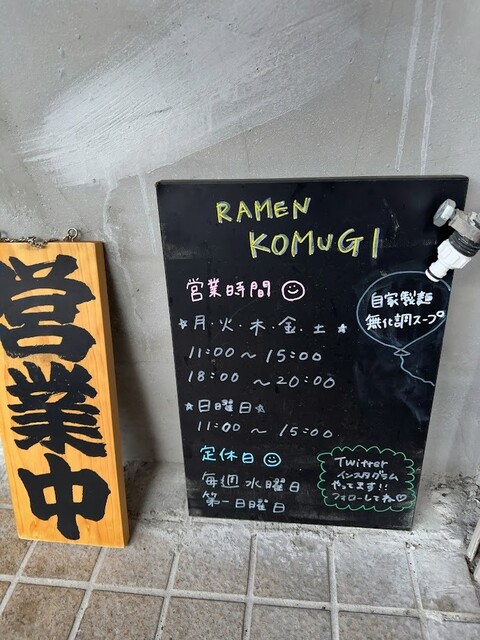 営業中
RAMEN
KOMUGI
営業時間
月・火・木・金・土
11:00～15:00
18:00～20:00
日曜日
11:00～15:00
定休日
毎週水曜日
第一日曜日
自家製麺
無化調スープ
Twitter
インスタグラム
やってます!!
フォローしてね♡